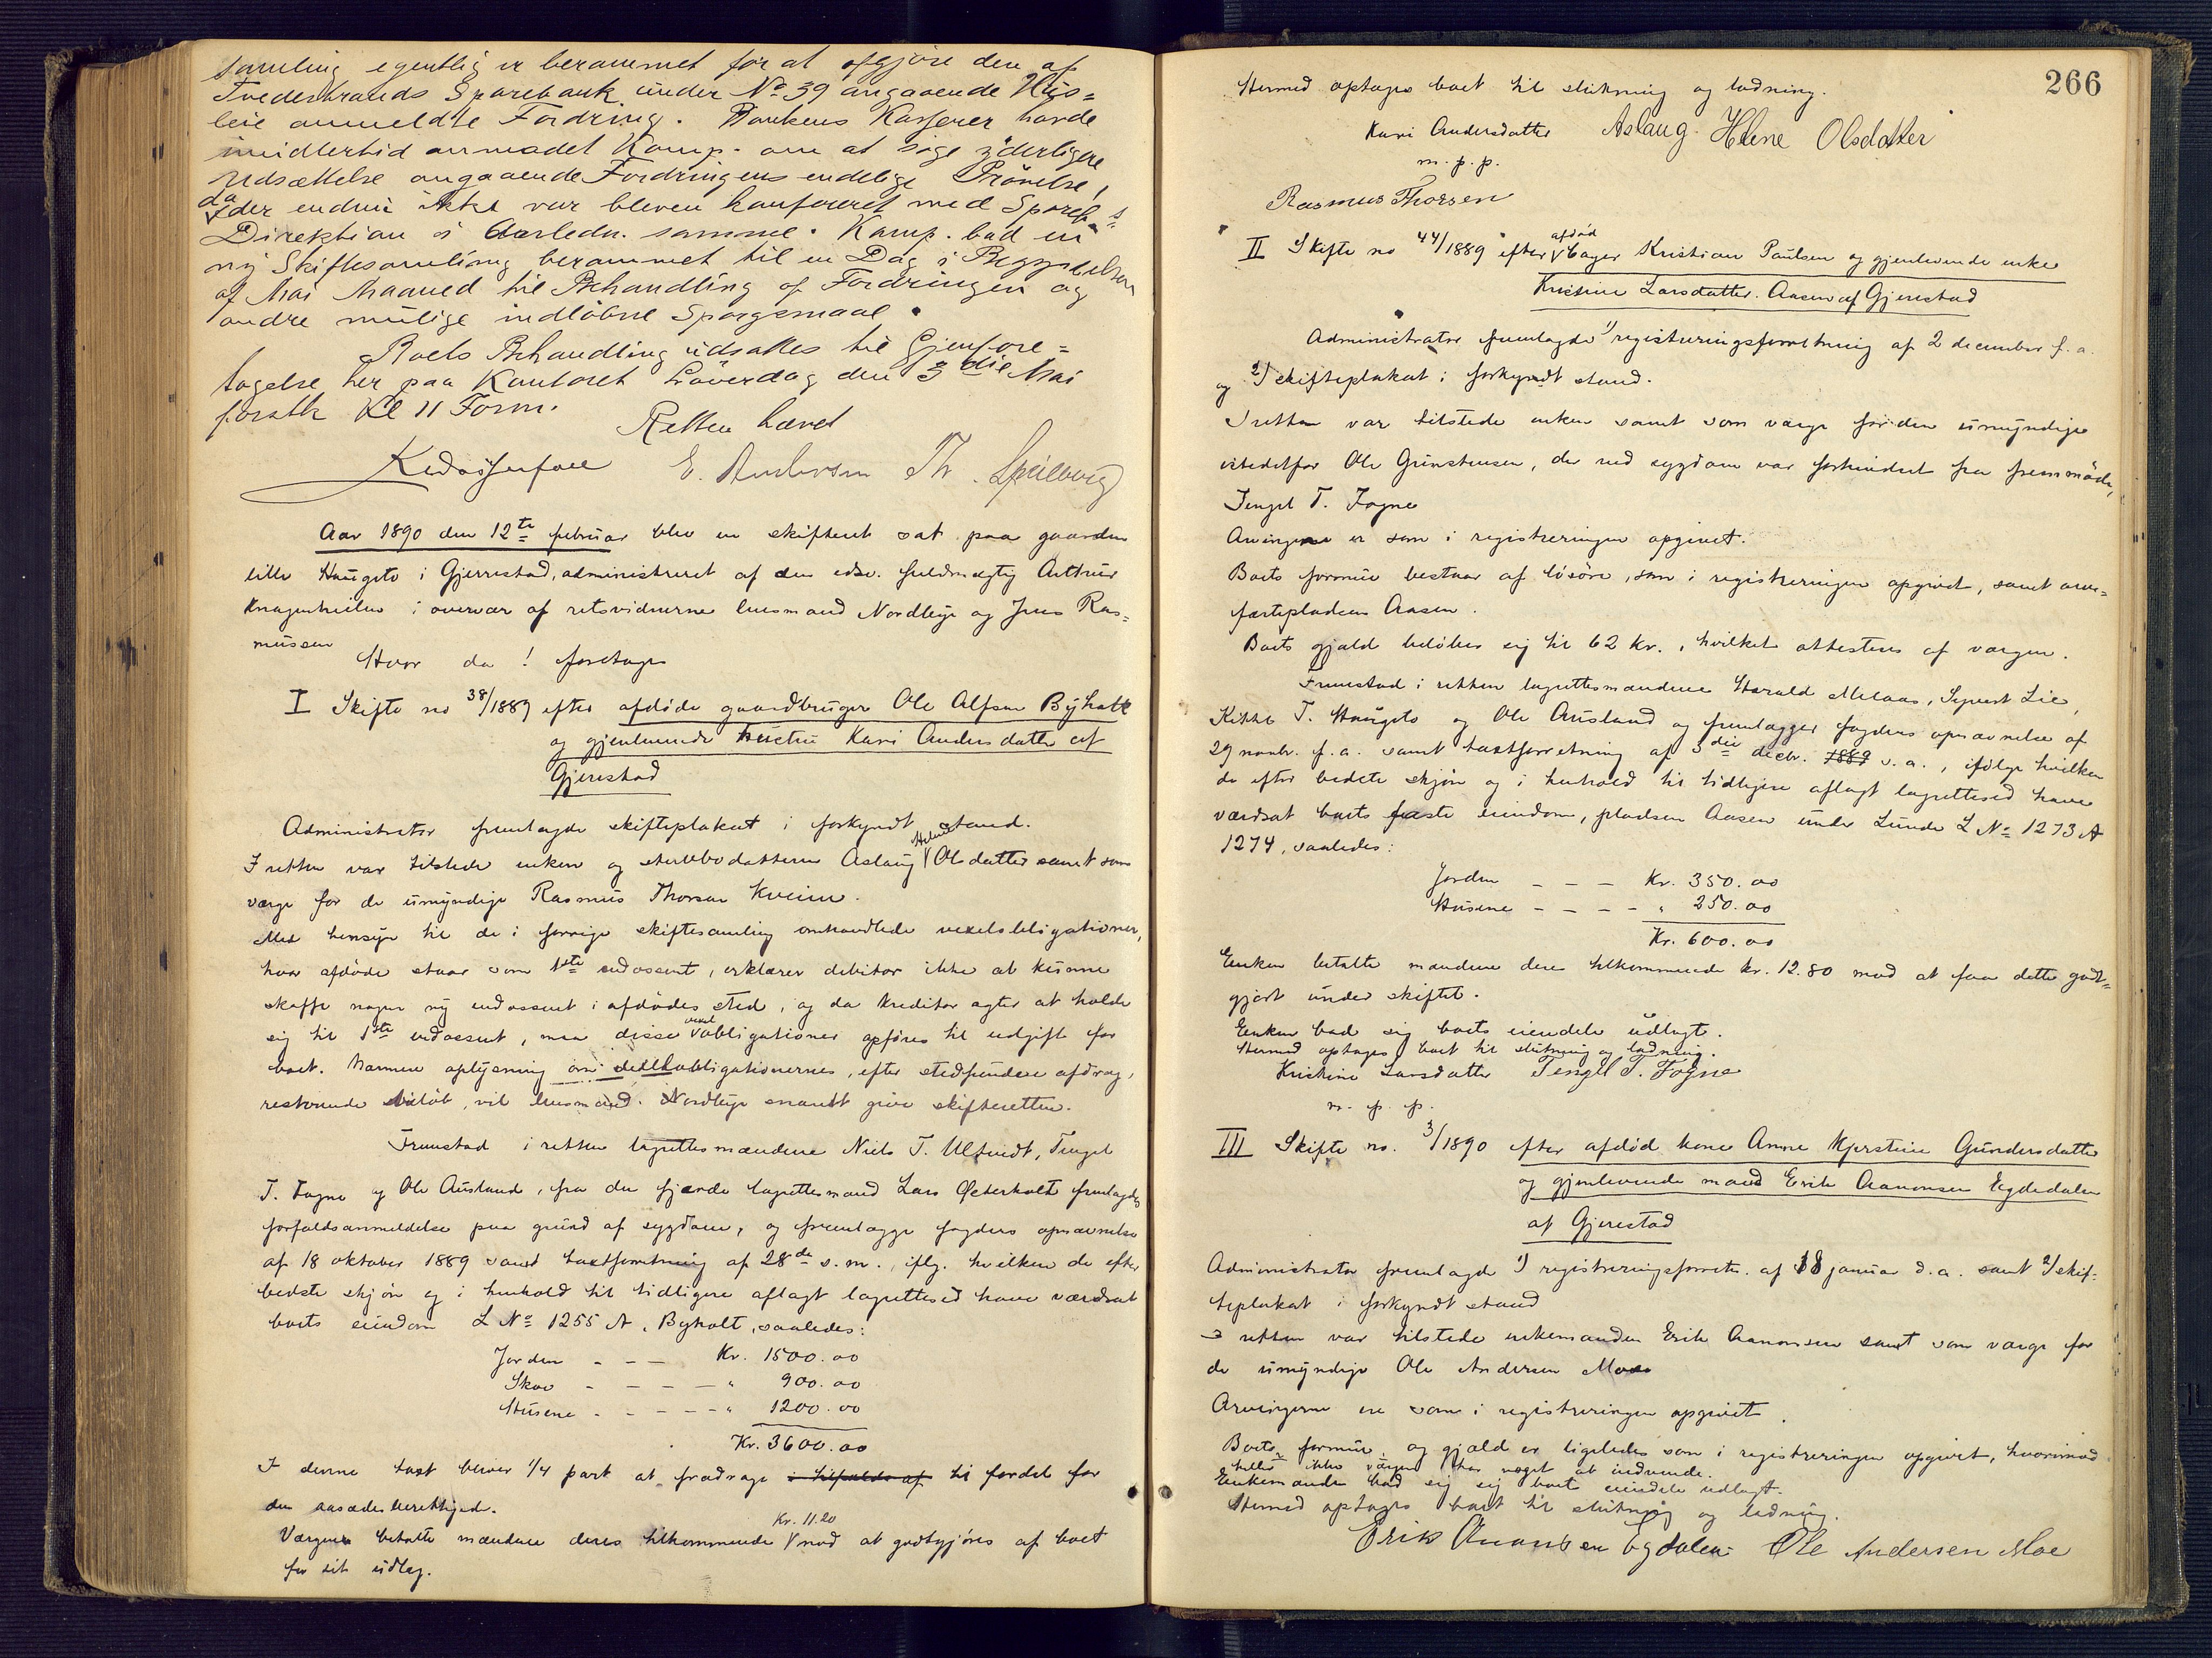 samling egentlig er berammet for at afgjöre den af
Tvedestrands Sparebank under No 39 angaaende Hus=
leie anmeldte Fordring. Bankens Kasserer havde
imidlertid anmodet Komp. om at söge yderligere
Udsættelse angaaende Fordringens endelige Prövelse,
da der endnu ikke var bleven konfereret med Spareb.s
Direktion i Anledn. samme. Komp. bad en
ny Skiftesamling berammet til en Dag i Begyndelsen
af Mai Maaned til Behandling af Fordringen og
andre mulige indløbne Spørgsmaal.
Boets Behandling udsattes til Gjenfore=
tagelse her paa Kontoret Löverdag den 3die Mai
førstk Kl 11 Form.
Retten hævet
E. Andersen Th. Speilberg
Aar 1890 den 12te februar blev en skifteret sat paa gaarden
lille Haugeto i Gjerrestad, administreret af den edsv. fuldmægtig Arthur
Knagenhielm i overvær af retsvidnerne lensmand Nordbye og Jens Ras=
mussen
Hvor da! foretoges
I Skifte no 38/1889 efter afdöde gaardbruger Ole Alfsen Byholt
og gjenlevende hustru Kari Andersdatter af
Gjerestad
Administrator fremlagde skifteplakat i forkyndt stand.
I retten var tilstede enken og sterbbodatteren Aslaug Helene Olsdatter samt som
værge for de umyndige Rasmus Thorsen Kveim.
Med hensyn til de i forrige skiftesamling omhandlede vexelobligationer,
hvor afdöde staar som 1ste endossent, erklærer debitor ikke at kunne
skaffe nogen ny endossent i afdödes sted, og da kreditor agter at holde
sig til 1ste endossent, maa disse vexelobligationer opföres til udgift for
boet. Nærmere oplysning om obligationernes, efter stedfundne afdrag,
resterende belöb, vil lensmand Nordbye snarest give skifteretten.
Fremstod i retten lagrettesmændene Niels T. Ulltveidt, Tengel
T. Fogne og Ole Ausland, fra den fjerde lagrettesmand Lars Østerholt fremlagdes
forfaldsanmeldelse paa grund af sygdom, og fremlægge fogdens opnævnelse
af 18 oktober 1889 samt taxtforretning af 28de s.m., iflg. hvilken de efter
bedste skjön og i henhold til tidligere aflagt lagrettesed have værdsat
boets eiendom L No 1255 A, Byholt, saaledes:
Jorden - - - Kr. 1500.00
Skov - - - - - " 900.00
Husene - - - - - " 1200.00
Kr. 3600.00
I denne taxt bliver 1/4 part at fradrage i tilfælde af til fordel for
den aasædesberettigede.
Værgen betalte mændene deres tilkommende Kr. 11.20 mod at godtgjöres af boet
for sit udlæg.
266
Hermed optages boet til slutning og lodning.
Kari Andersdatter Aslaug Helene Olsdatter
m. p. p.
Rasmus Thorsen
II Skifte no 44/1889 efter afdöd Kristian Paulsen og gjenlevende enke
Kristine Larsdatter Aasen af Gjerestad
Administrator fremlagde 1) registreringsforretning af 2 december f.a.
og 2) skifteplakat i forkyndt stand.
I retten var tilstede enken samt som værge for den umyndige
istedetfor Ole Grunstensen, der ved sygdom var forhindret fra fremmöde,
Tengel T. Fogne
Arvingerne er som i registreringen opgivet.
Boets formue bestaar af lösöre, som i registreringen opgivet, samt arve=
fæstepladsen Aasen.
Boets gjæld belöber sig til 62 Kr., hvilket attesteres af værgen.
Fremstod i retten lagrettesmændene Harald Melaas, Syvert Lie,
T. Haugeto og Ole Ausland og fremlægger fogdens opnævnelse af
29 novbr. f.a. samt taxtforretning af 3die decbr. 1889 s.a., ifölge hvilken
de efter bedste skjön og i henhold til tidligere aflagt lagrettesed have
værdsat boets faste eiendom, pladsen Aasen under Lunde L No 1273 A
1274, saaledes:
Jorden - - - Kr. 350.00
Husene - - - - " 250.00
Kr. 600.00
Enken betalte mændene deres tilkommende kr. 12.80 mod at faa dette godt=
gjort under skiftet.
Enken bad sig boets eiendele udlagt.
Hermed optages boet til slutning og lodning.
Kristine Larsdatter Tengel T. Fogne
m. p. p.
III Skifte no. 3/1890 efter afdöd kone Anne Kjerstine Gundersdatter
og gjenlevende mand Erik Aanonsen Egdedalen
af Gjerestad
Administrator fremlagde 1) registreringsforretn. af 18 januar d.a. samt 2) skif=
teplakat i forkyndt stand
I retten var tilstede enkemanden Erik Aanonsen samt som værge for
de umyndige Ole Andersen Moe
Arvingerne ere som i registreringen opgivet.
Boets formue og gjæld er ligeledes som i registreringen opgivet, hvorimod
heller ikke værgen har noget at indvende.
Enkemanden bad sig boets eiendele udlagt.
Hermed optages boet til slutning og lodning.
Erik Anonsen Egdalen Ole Andersen Moe